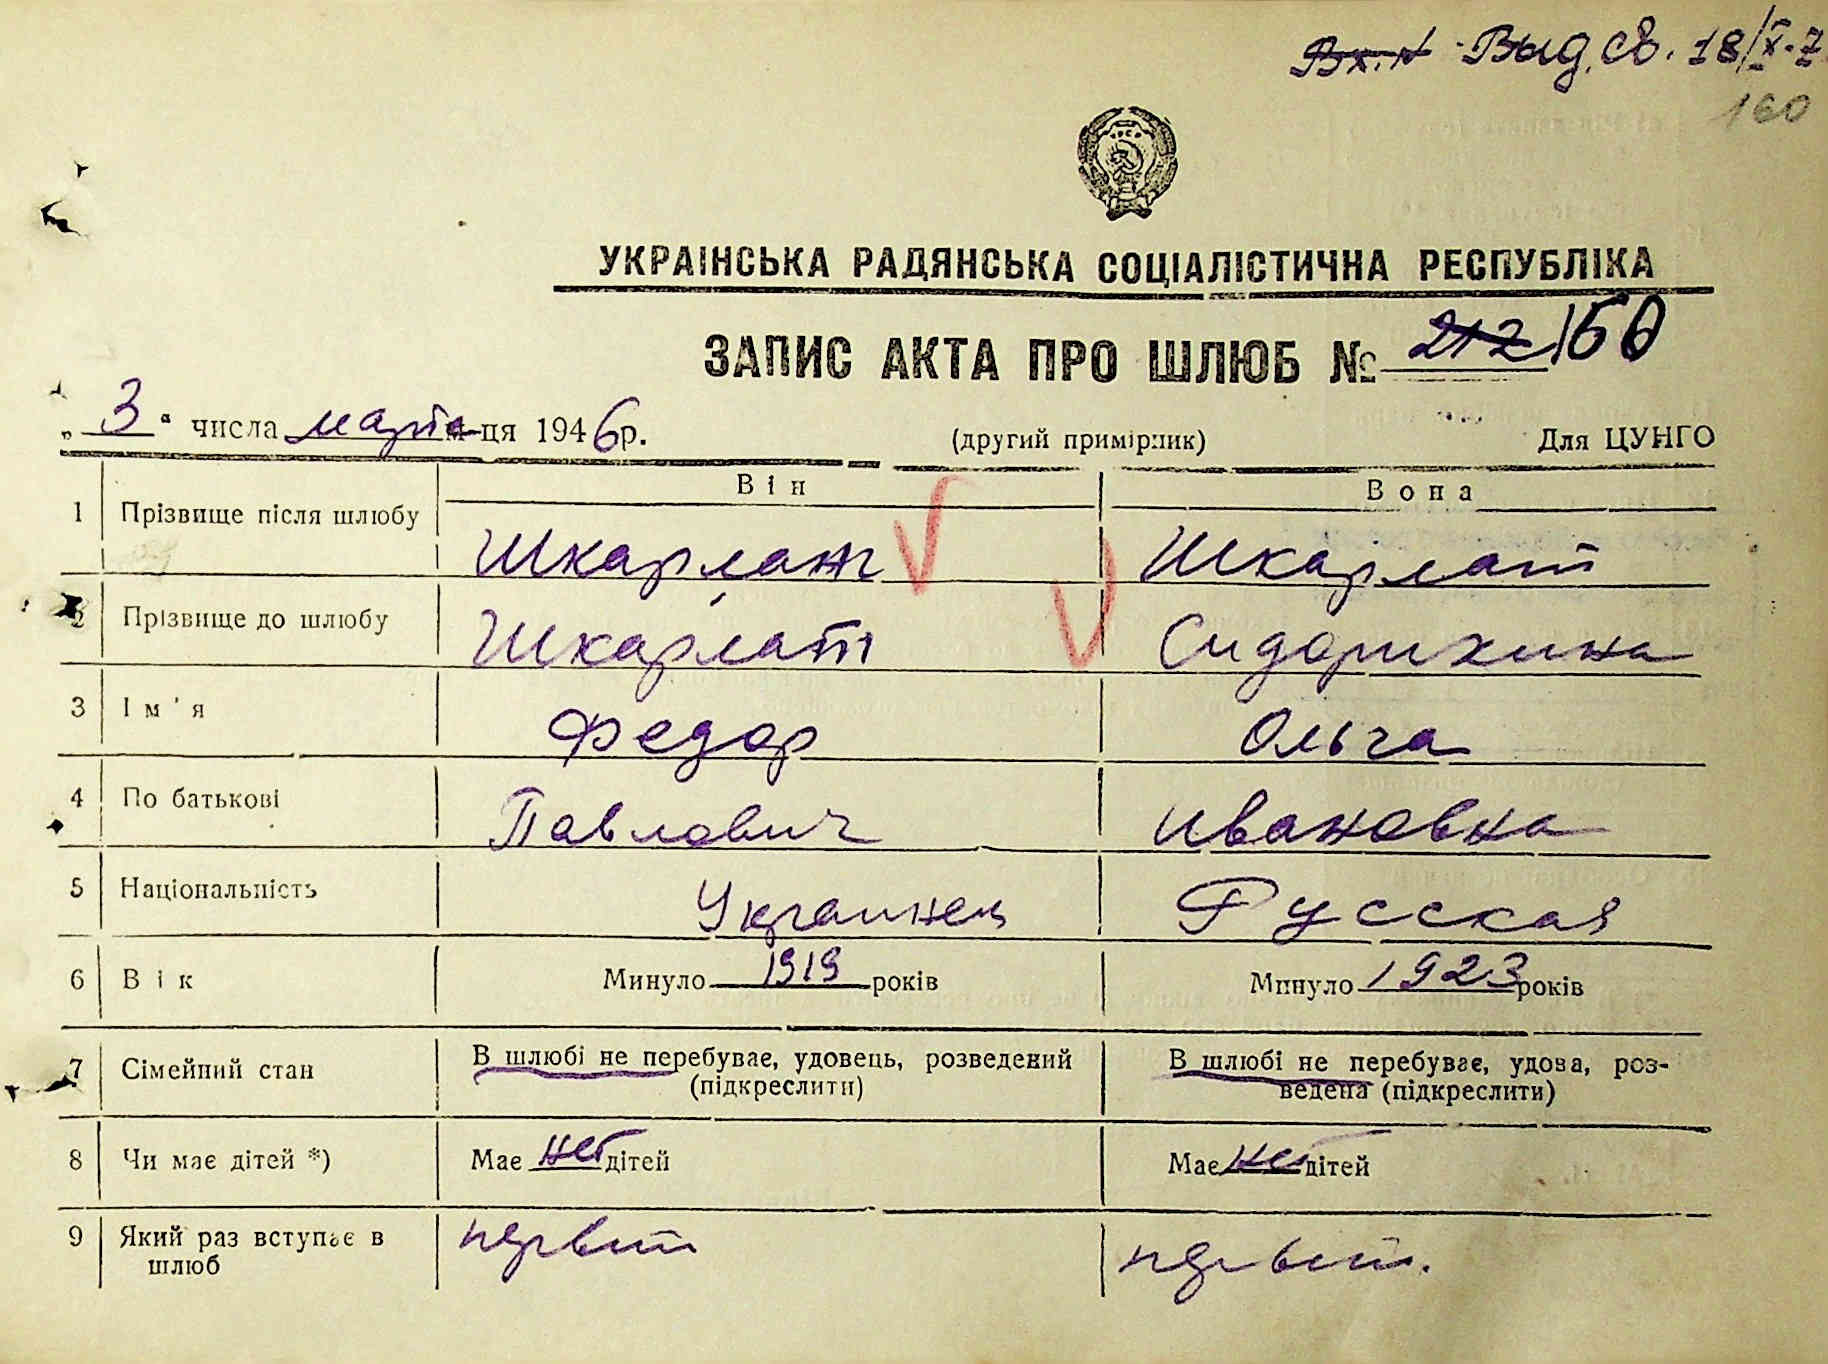 Вх.N Выд. св. 18/X-7
160
УКРАІНСЬКА РАДЯНСЬКА СОЦІАЛІСТИЧНА РЕСПУБЛІКА
ЗАПИС АКТА ПРО ШЛЮБ № 212 160
„3“ числа марта м-ця 1946 р. (другий примірник) Для ЦУНГО
Він Вона
1 Прізвище після шлюбу Шкарлат Шкарлат
2 Прізвище до шлюбу Шкарлат Сидорихина
3 Ім'я Федор Ольга
4 По батькові Павлович Ивановна
5 Національність Украинец Русская
6 Вік Минуло 1919 років Минуло 1923 років
7 Сімейний стан В шлюбі не перебуває, удовець, розведений (підкреслити) В шлюбі не перебуває, удова, роз-
ведена (підкреслити)
8 Чи має дітей *) Має нет дітей Має нет дітей
9 Який раз вступає в шлюб первый первый.